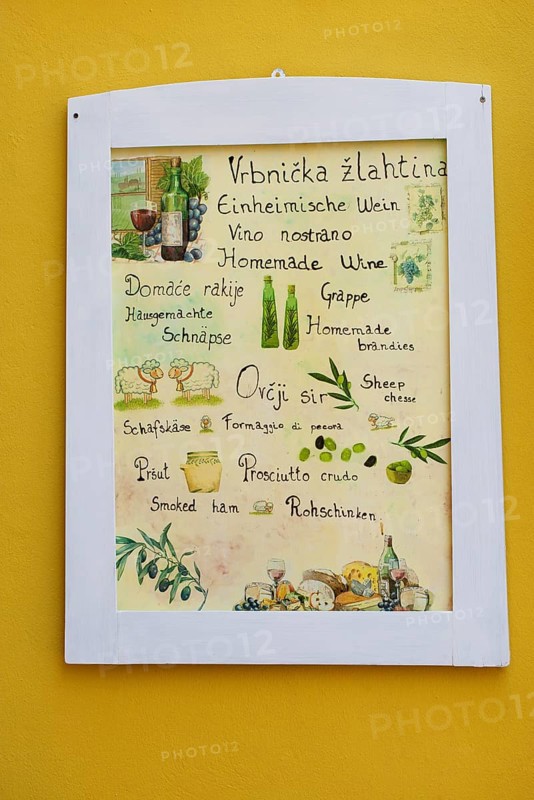 Vrbnička žlahtina
Einheimische Wein
Vino nostrano
Homemade Wine
Domaće rakije
Grappe
Hausgemachte
Schnäpse
Homemade
brandies
Ovčji sir
Sheep
chesse
Schafskäse Formaggio di pecora
Pršut Prosciutto crudo
Smoked ham Rohschinken
PHOTO12
PHOTO12
PHOTO12
PHOTO12
PHOTO12
PHOTO12
PHOTO12
PHOTO12